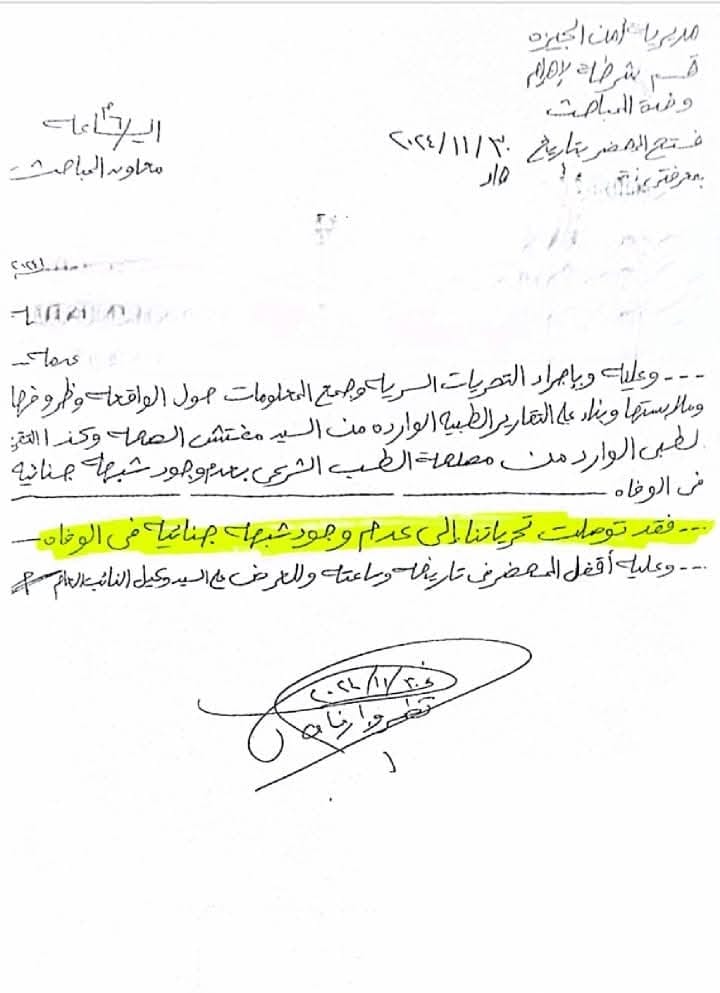 مديرية أمن الجيزه
قسم شرطة الاهرام
وحدة المباحث
فتح المحضر بتاريخ ٢٠٢٤/١١/٣٠ الساعة ٦م
بمعرفتى نحن معاون المباحث
٢٠٢٤
--- وعليه وبإجراء التحريات السريه وجمع المعلومات حول الواقعه وظروفها
وملابستها وبناء على التقارير الطبيه الوارده من السيد مفتش الصحه وكذا التقرير
لطبى الوارد من مصلحة الطب الشرعى بعدم وجود شبهه جنائيه
فى الوفاه
--- فقد توصلت تحرياتنا إلى عدم وجود شبهه جنائيه فى الوفاه
--- وعليه أقفل المحضر فى تاريخه وساعته وللعرض على السيد وكيل النائب العام
٢٠٢٤/١١/٣٠
نظر وارفاق